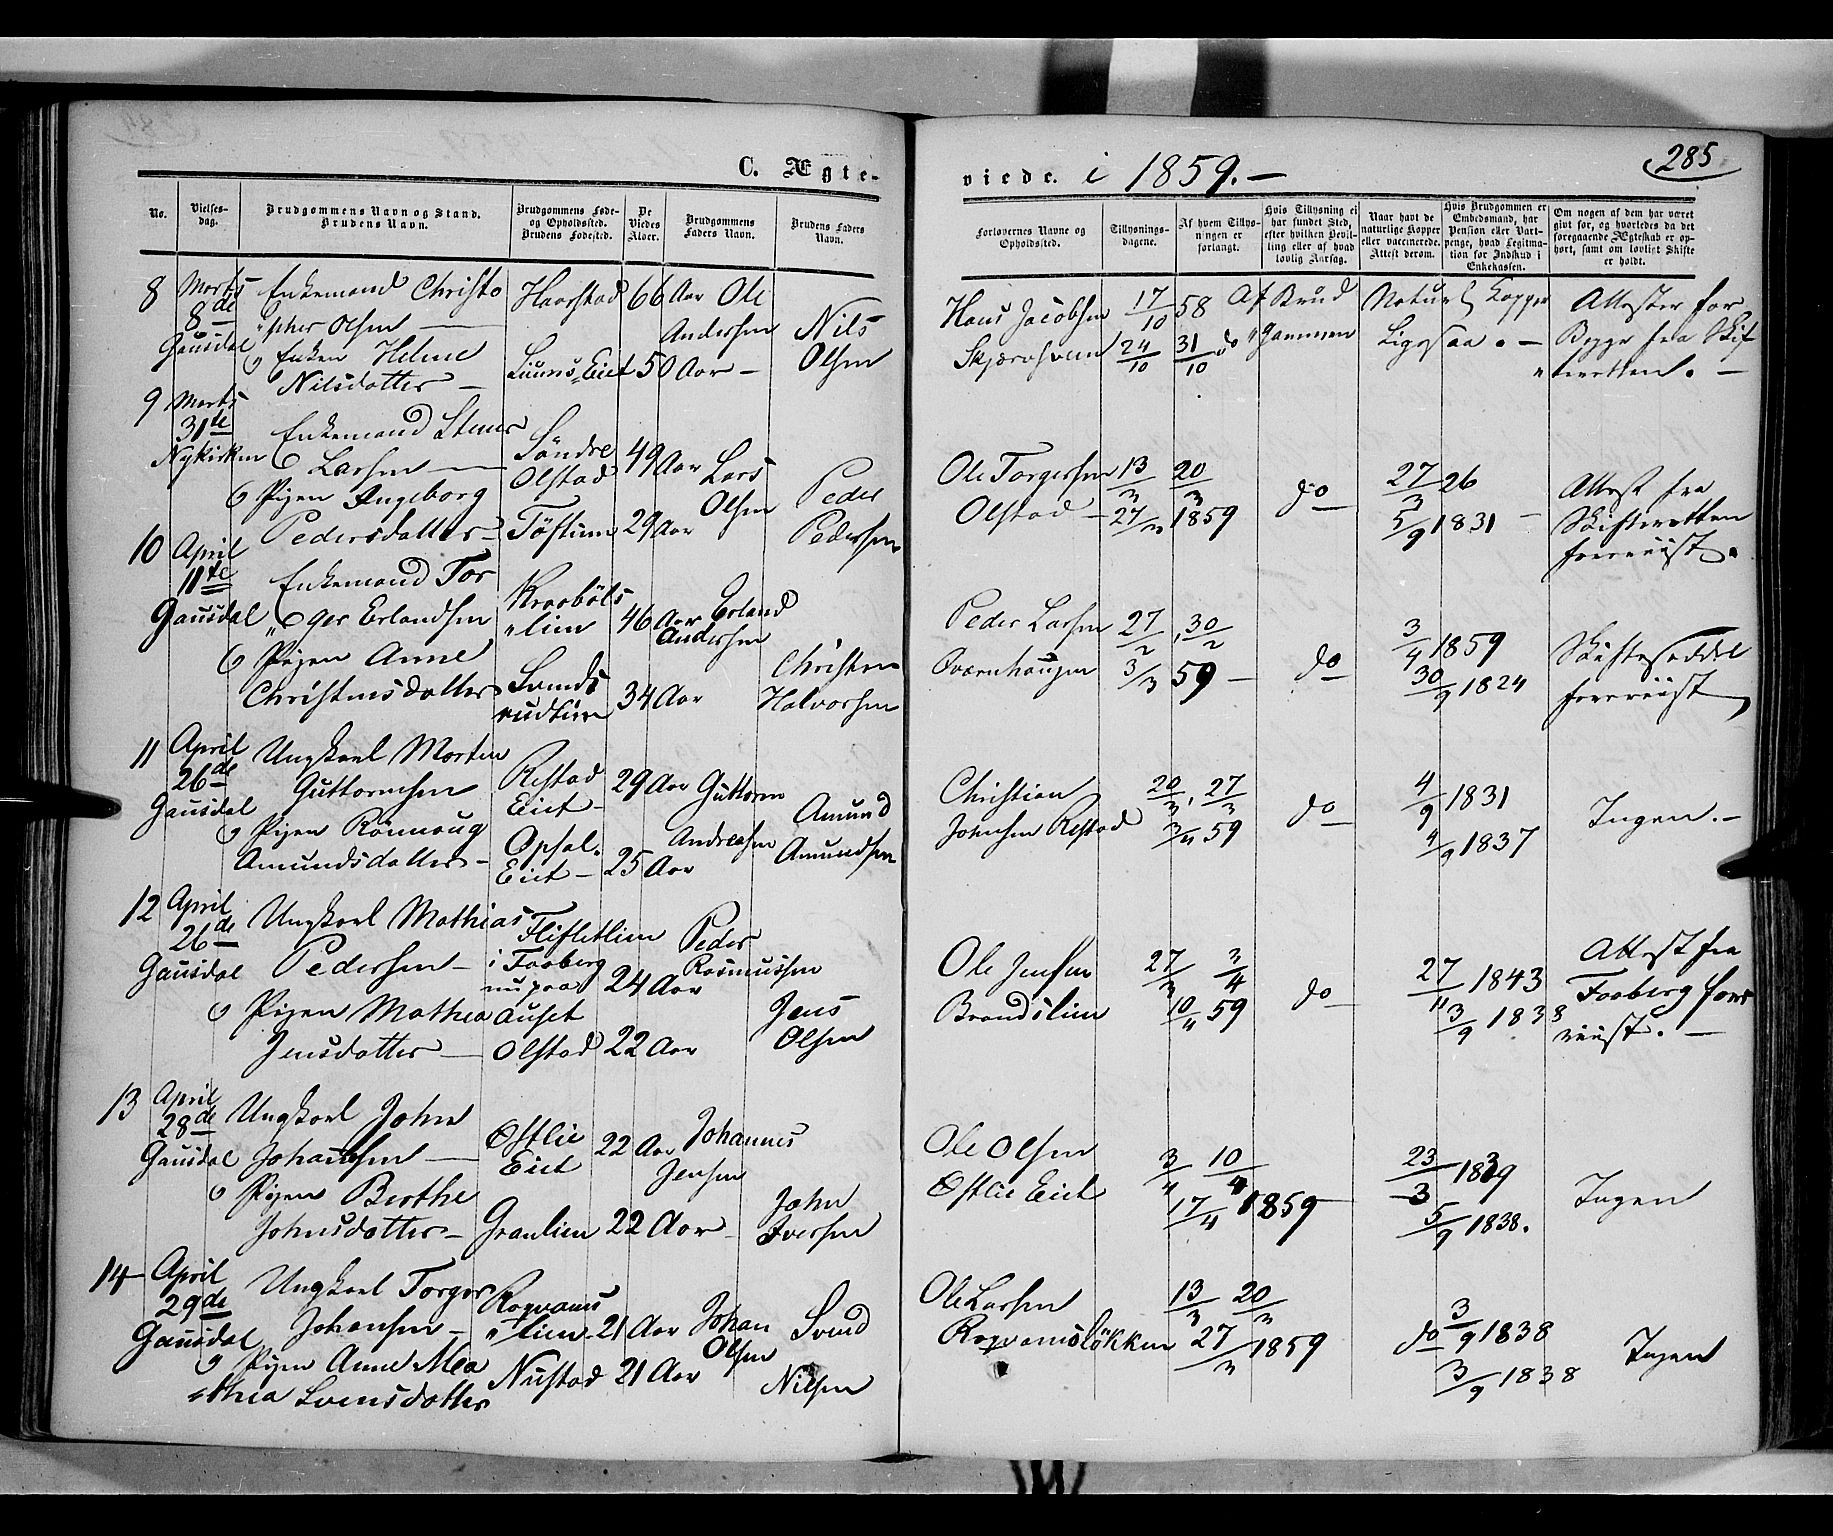 285
C. Ægteviede. i 1859. —
No.
Vielses-
dag.
Brudgommens Navn og Stand.
Brudens Navn.
Brudgommens Føde-
og Opholdssted.
Brudens Fødested.
De
Viedes
Alder.
Brudgommens
Faders Navn.
Brudens Faders
Navn.
Forlovernes Navne og
Opholdssted.
Tillysnings-
dagene.
Af hvem Tillys-
ningen er
forlangt.
Hvis Tillysning ei
har fundet Sted,
efter hvilken Bevil-
ling eller af hvad
lovlig Aarsag.
Naar havt de
naturlige Kopper
eller vaccinerede.
Attest derom.
Hvis Brudgommen er
Embedsmand, har
Pension eller Vart-
penge, hvad Legitima-
tion for Indskud i
Enkekassen.
Om nogen af dem har været
givt før, og hvorledes da det
foregaaende Ægteskab er op-
hørt, samt om lovligt Skifte
er holdt.
8
Marts
8de
Gausdal
Enkemand Christo
"pher Olsen —
Enken Helene
Nilsdatter —
Haarstad
Eiet
66 Aar
50 Aar —
Ole
Andersen
Nils
Olsen
Hans Jacobsen
17/10 58
24/10 31/10
Af Brud
do "gommen
Naturl. Kopper
Ligesaa. —
Attester for
Begge fra Skif
"teretten. —
9
Marts
31te
Nykirken
Enkemand
Larsen —
Pigen Ingeborg
Pedersdatter —
Söndre
Olstad
49 Aar
29 Aar
Lars
Olsen
Peder
Pedersen
Ole Torgersen
Olstad —
13/3 20/3
27/3 1859
do
27/3 26
5/9 1831 —
Attest fra
Skifteretten
foreviist.
10
April
11te
Gausdal
Enkemand Tor
"ger Erlandsen
Pigen Anne
Christensdatter
Kraaböls
"lien
46 Aar
34 Aar
Erland
Andersen
Christen
Halvorsen
Peder Larsen
27/2, 30/2
3/3 59 —
do
3/4 1859
30/9 1824
Skifteseddel
foreviist
11
April
26de
Gausdal
Ungkarl Morten
Guttormsen
Pigen Rönnaug
Amundsdatter —
Restad
Eiet —
Opsal.
Eiet —
29 Aar
25 Aar
Guttorm
Andreasen
Amund
Amundsen
Christian
Johnsen Restad
20/3, 27/3
3/4 59
do
4/9 1831
4/9 1837
Ingen. —
12
April
26de
Gausdal
Ungkarl Mathias
Pedersen —
Pigen Mathea
Jensdatter —
Flifletlien
i Faaberg
nu paa
Auset
Olstad
24 Aar
22 Aar
Peder
Rasmussen
Jens
Olsen
Ole Jensen
Brandslien
27/3 3/4
10/4 59
do
27/11 1843
3/9 1838
Attest fra
Faaberg fore
viist. —
13
April
28de
Gausdal
Ungkarl John
Johannesen —
Pigen Berthe
Johnsdatter —
Østlie
Eiet
Granlien
22 Aar
22 Aar
Johannes
Jensen
John
Iversen
Ole Olsen
Østlie Eiet
3/4 10/4
17/4 1859
23/3 1839
5/9 1838.
Ingen
14
April
29de
Gausdal
Ungkarl Torger
Johansen —
Pigen Anne Ma
"thea Svensdatter
Nustad
21 Aar
21 Aar
Johan
Olsen
Svend
Nilsen
Ole Larsen
13/3 20/3
27/3 1859
do
3/9 1838
3/9 1838
Ingen